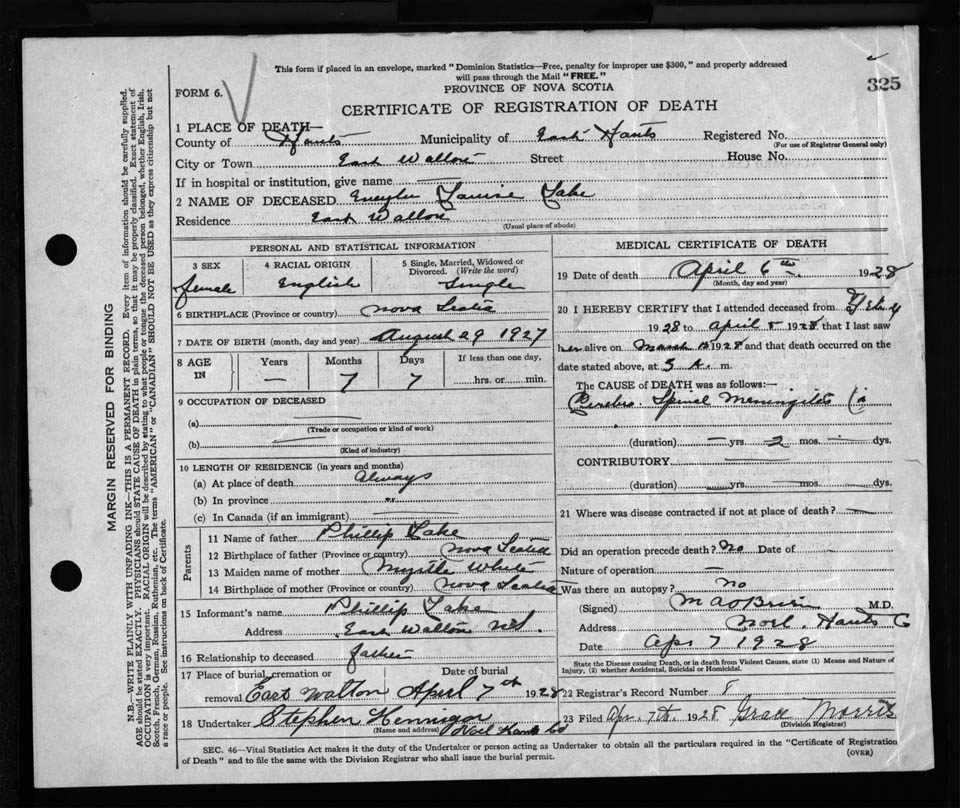 This form if placed in an envelope, marked "Dominion Statistics—Free, penalty for improper use $300," and properly addressed
will pass through the Mail "FREE."
325
FORM 6.
PROVINCE OF NOVA SCOTIA
CERTIFICATE OF REGISTRATION OF DEATH
1 PLACE OF DEATH—
County of Hants Municipality of East Hants Registered No.
(For use of Registrar General only)
City or Town East Walton Street House No.
If in hospital or institution, give name —
2 NAME OF DECEASED Lake
Residence East Walton
(Usual place of abode)
PERSONAL AND STATISTICAL INFORMATION
3 SEX 4 RACIAL ORIGIN 5 Single, Married, Widowed or Divorced. (Write the word)
female English Single
6 BIRTHPLACE (Province or country) Nova Scotia
7 DATE OF BIRTH (month, day and year) August 29 1927
8 AGE IN Years Months Days If less than one day,
— 7 7 hrs. or min.
9 OCCUPATION OF DECEASED
(a)
(Trade or occupation or kind of work)
(b)
(Kind of industry)
10 LENGTH OF RESIDENCE (in years and months)
(a) At place of death Always
(b) In province "
(c) In Canada (if an immigrant) —
Parents
11 Name of father Phillip Lake
12 Birthplace of father (Province or country) Nova Scotia
13 Maiden name of mother Myrtle White
14 Birthplace of mother (Province or country) Nova Scotia
15 Informant's name Phillip Lake
Address East Walton N.S.
16 Relationship to deceased father
17 Place of burial, cremation or Date of burial
removal East Walton April 7th 1928
18 Undertaker Stephen Hennigar
(Name and address) Noel Hants Co
MEDICAL CERTIFICATE OF DEATH
19 Date of death April 6th 1928
(Month, day and year)
20 I HEREBY CERTIFY that I attended deceased from
1928 to April 5 1928 that I last saw
her alive on March 1928 and that death occurred on the
date stated above, at 5 A. m.
The CAUSE of DEATH was as follows:—
Cerebro. Spinal Meningitis
(duration) — yrs. 2 mos. — dys.
CONTRIBUTORY —
(duration) — yrs. — mos. — dys.
21 Where was disease contracted if not at place of death? —
Did an operation precede death? No Date of —
Nature of operation —
Was there an autopsy? No
(Signed) M A O'Brien M.D.
Address Noel, Hants Co
Date Apr 7 1928
State the Disease causing Death, or in death from Violent Causes, state (1) Means and Nature of
Injury, (2) whether Accidental, Suicidal or Homicidal.
22 Registrar's Record Number 8
23 Filed Apr. 7th. 1928 Morris
(Division Registrar)
SEC. 46—Vital Statistics Act makes it the duty of the Undertaker or person acting as Undertaker to obtain all the particulars required in the "Certificate of Registration
of Death" and to file the same with the Division Registrar who shall issue the burial permit.
(OVER)
MARGIN RESERVED FOR BINDING
N.B.—WRITE PLAINLY WITH UNFADING INK—THIS IS A PERMANENT RECORD. Every item of information should be carefully supplied.
AGE should be stated EXACTLY. PHYSICIANS should STATE CAUSE OF DEATH in plain terms, so that it may be properly classified. Exact statement of
OCCUPATION is very important. RACIAL ORIGIN will be described by stating to what people or tongue the deceased person belonged, whether English, Irish,
Scotch, French, German, Russian, Ruthenian, etc. The terms "AMERICAN" or "CANADIAN" SHOULD NOT BE USED as they express citizenship but not
a race or people. See instructions on back of Certificate.